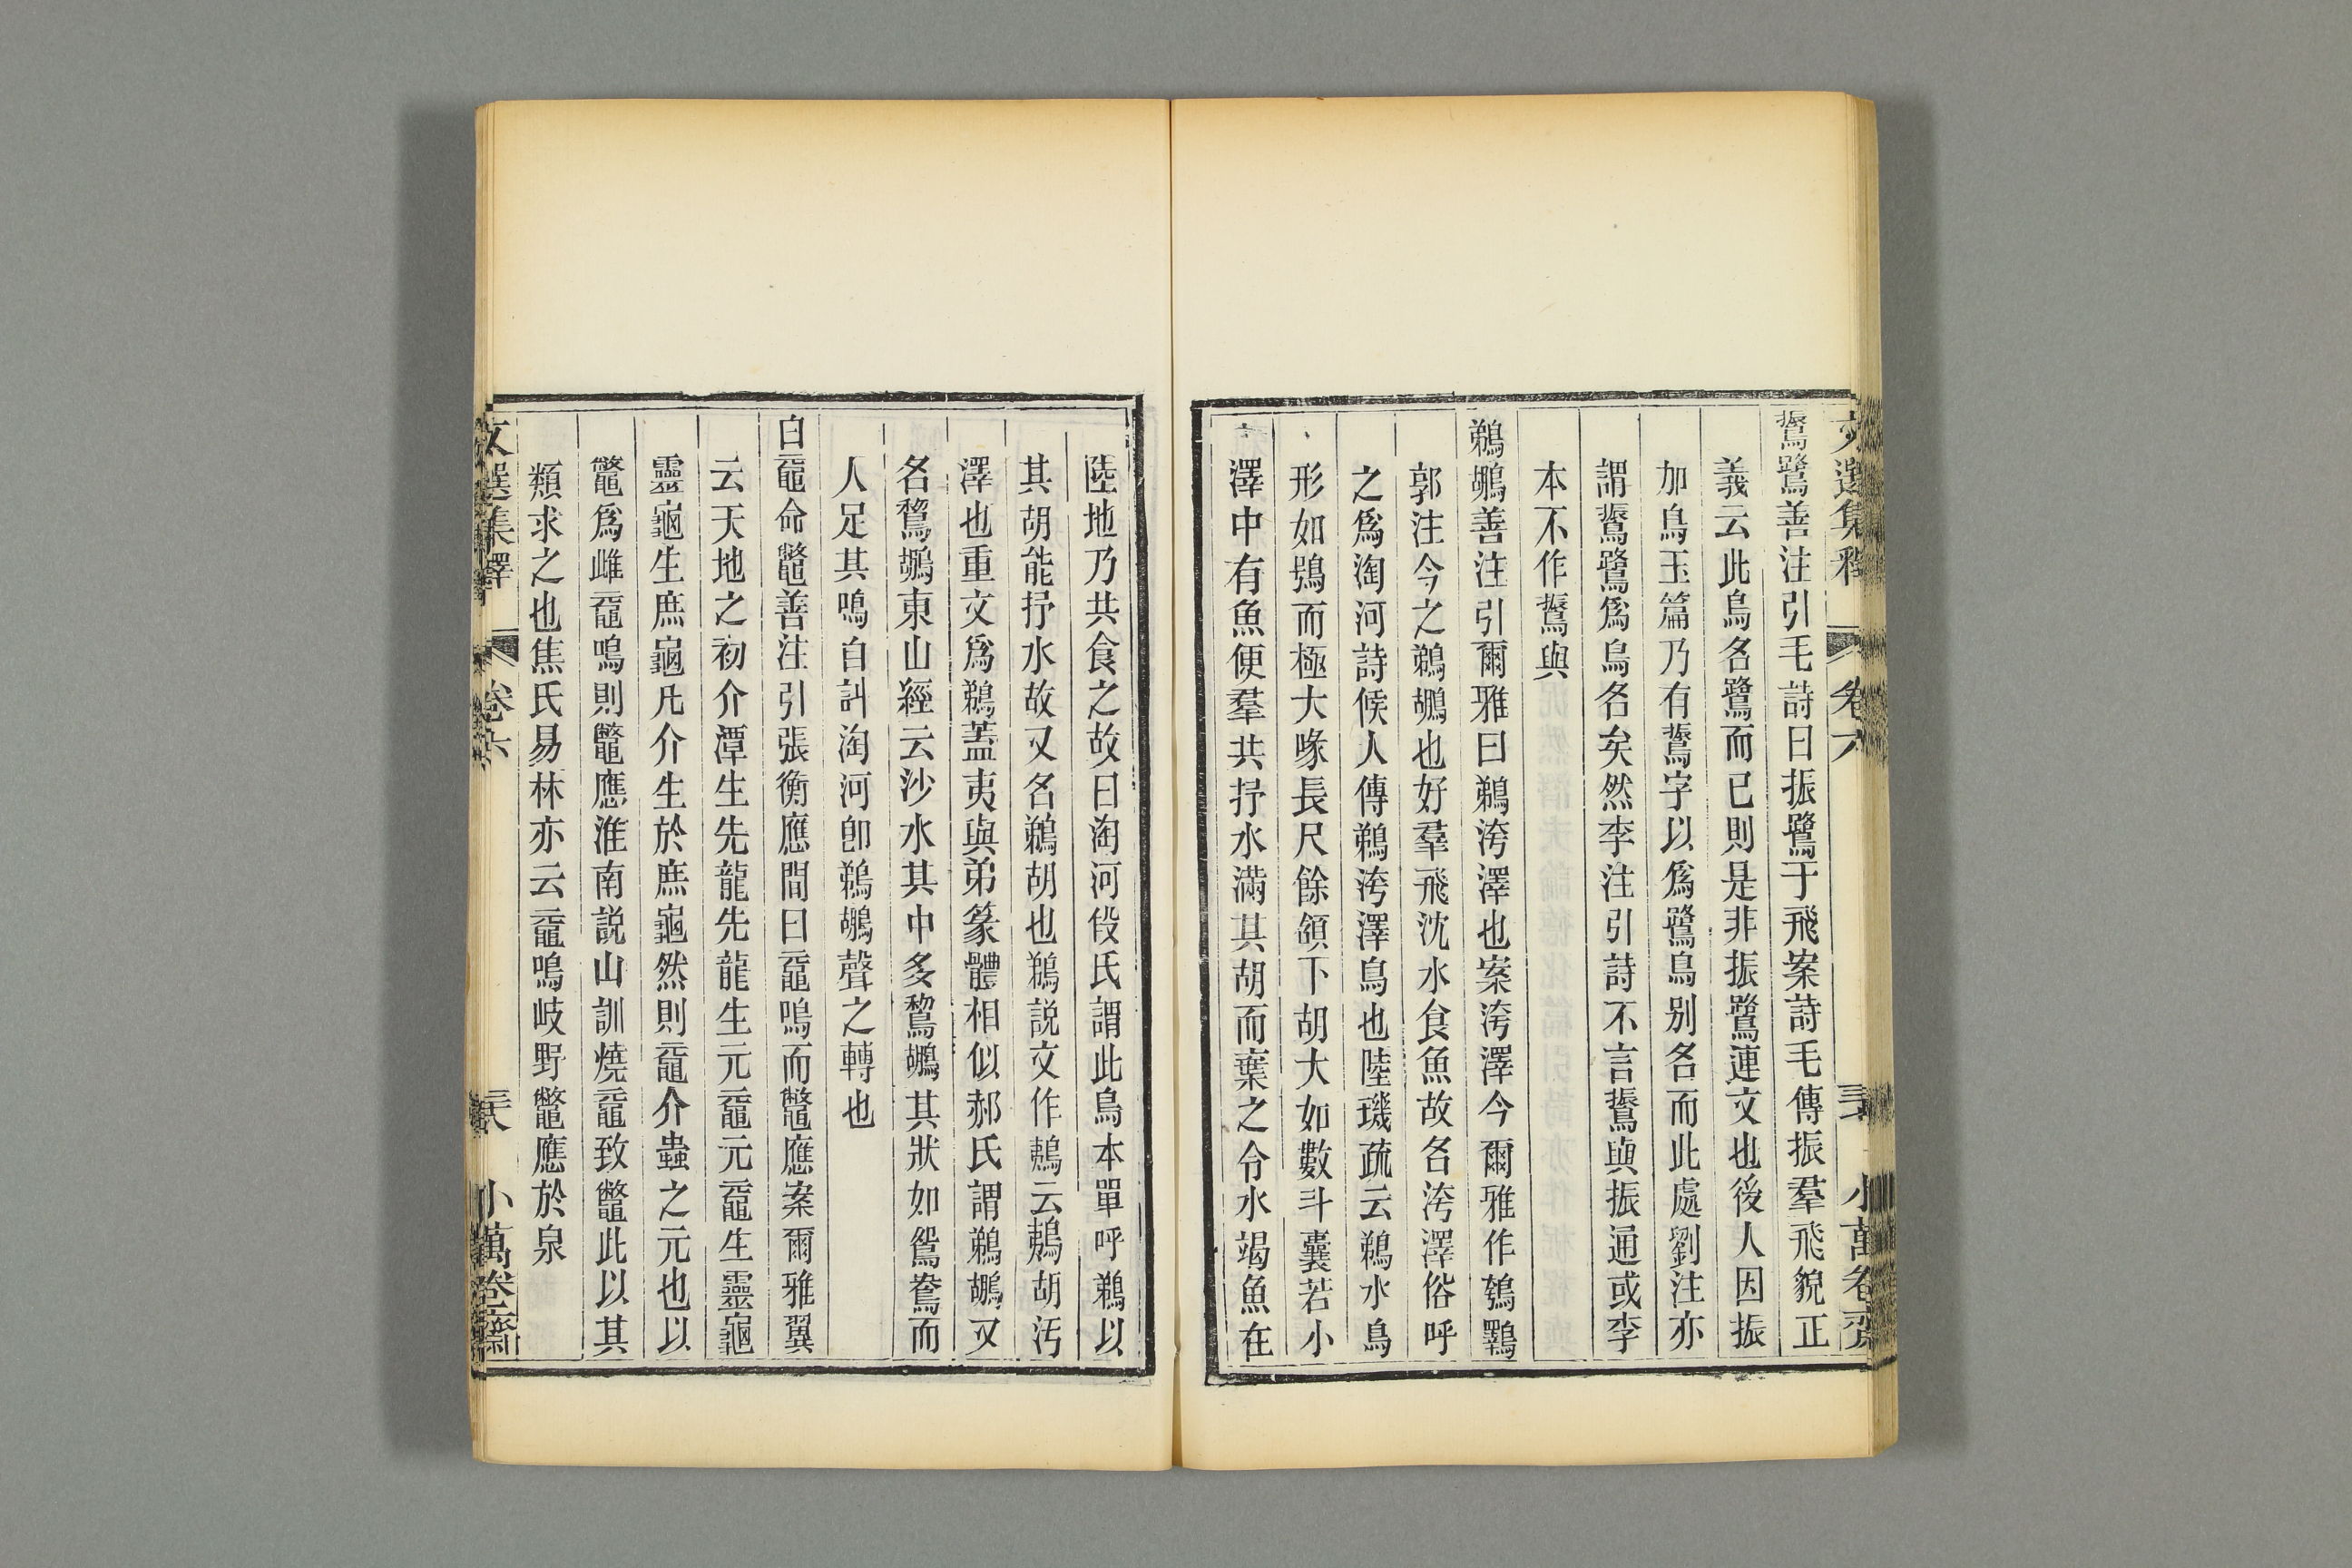 文選集釋　卷六　三十七　小萬卷齋
鷖鷺善注引毛詩曰振鷺于飛案詩毛傳振羣飛貌正
義云此鳥名鷺而已則是非振鷺連文也後人因振
加鳥玉篇乃有鷖字以爲鷺鳥别名而此處劉注亦
謂鷖鷺爲鳥名矣然李注引詩不言鷖與振通或李
本不作鷖與
鵜鶘善注引爾雅曰鵜洿澤也案洿澤今爾雅作鴮鸅
郭注今之鵜鶘也好羣飛沈水食魚故名洿澤俗呼
之爲淘河詩候人傳鵜洿澤鳥也陸璣疏云鵜水鳥
形如鴞而極大喙長尺餘頷下胡大如數斗囊若小
澤中有魚便羣共抒水滿其胡而棄之令水竭魚在
陸地乃共食之故曰淘河段氏謂此鳥本單呼鵜以
其胡能抒水故又名鵜胡也鵜説文作鶗云鶗胡汚
澤也重文爲鵜蓋夷與弟篆體相似郝氏謂鵜鶘又
名鴽鶘東山經云沙水其中多鴽鶘其狀如鴛鴦而
人足其鳴自訆淘河卽鵜鶘聲之轉也
白黿命鼈善注引張衡應閒曰黿鳴而鼈應案爾雅翼
云天地之初介潭生先龍先龍生元黿元黿生靈龜
靈龜生庶龜凡介生於庶龜然則黿介蟲之元也以
鼈爲雌黿鳴則鼈應淮南説山訓燒黿致鼈此以其
類求之也焦氏易林亦云黿鳴岐野鼈應於泉
文選集釋　卷六　三十八　小萬卷齋